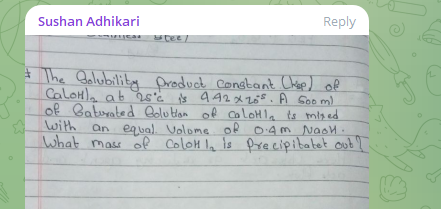 Sushan Adhikari
Reply
Steel
* The Solubility product constant (ksp) of
Ca(OH)2 at 25°c is 4.42 x 10-5. A 500 ml
of Saturated Solution of Ca(OH)2 is mixed
With an equal Volume of 0.4m NaoH.
What mass of Ca(OH)2 is Precipitatet out?